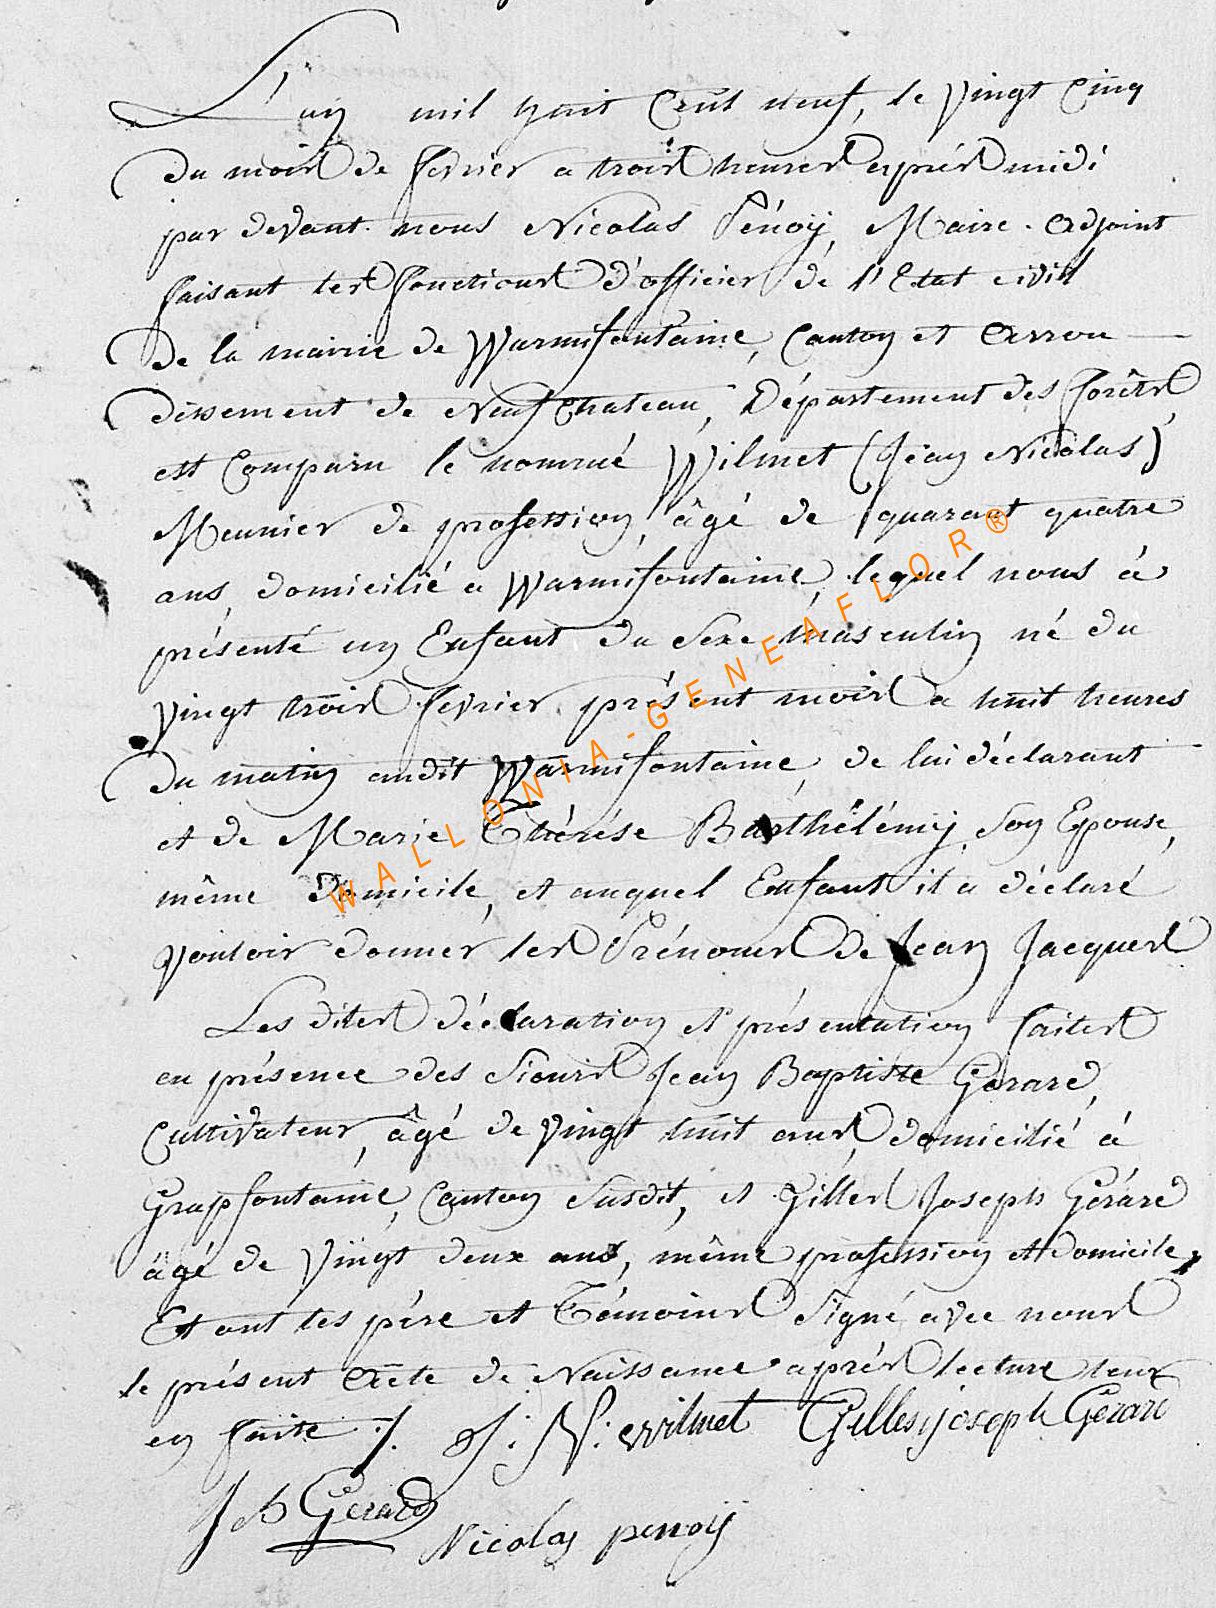 L'an mil huit Cent neuf, le vingt Cinq
du mois de fevrier a trois heures après midi
par devant nous Nicolas Pénoÿ, Maire-adjoint
faisant les fonctions d'officier de l'Etat civil
de la mairie de Warmifontaine, Canton et Arron
dissement de Neufchateau, Département des forêts
est Comparu le nommé Wilmet (Jean Nicolas)
Meunier de profession, âgé de quarant quatre
ans, domicilié a Warmifontaine, lequel nous à
présenté un Enfant du Sexe Masculin né du
vingt trois fevrier présent mois a huit heures
du matin audit Warmifontaine, de lui déclarant
et de Marie Thérése Barthélémÿ, Son Epouse,
même Domicile, et auquel Enfant il a déclaré
vouloir donner les Prénoms de Jean Jacques
Les dites déclaration et présentation faites
en présence des Sieurs Jean Baptiste Gerard,
Cultivateur, âgé de vingt huit ans, domicilié à
Grapfontaine, Canton Susdit, et Gilles Joseph Gérard
âgé de vingt deux ans, même profession et domicile,
Et ont les pére et Témoins Signé avec nous
le présent Acte de Naissance après lecture leur
en faite ./. J: N: wilmet Gilles joseph Gerard
J b Gerard
Nicolas penoÿ
WALLONIA-GENEAFLOR®